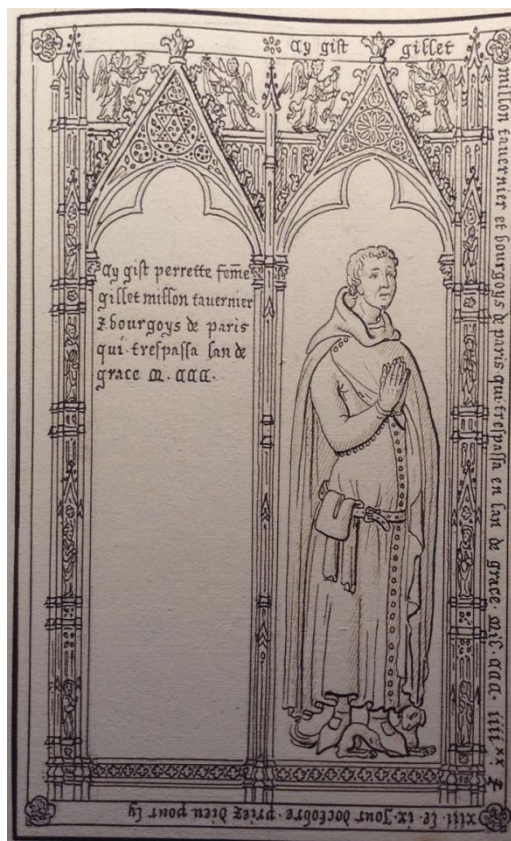 ※ Cy gist gillet
millon tauernier et bourgoys de paris qui trespassa en lan de grace mil CCC. iiii xx &
xiiii le ix. Jour doctobre. priez dieu pour ly
Cy gist perrette feme
gillet millon tauernier
& bourgoys de paris
qui trespassa lan de
grace M. CCC.